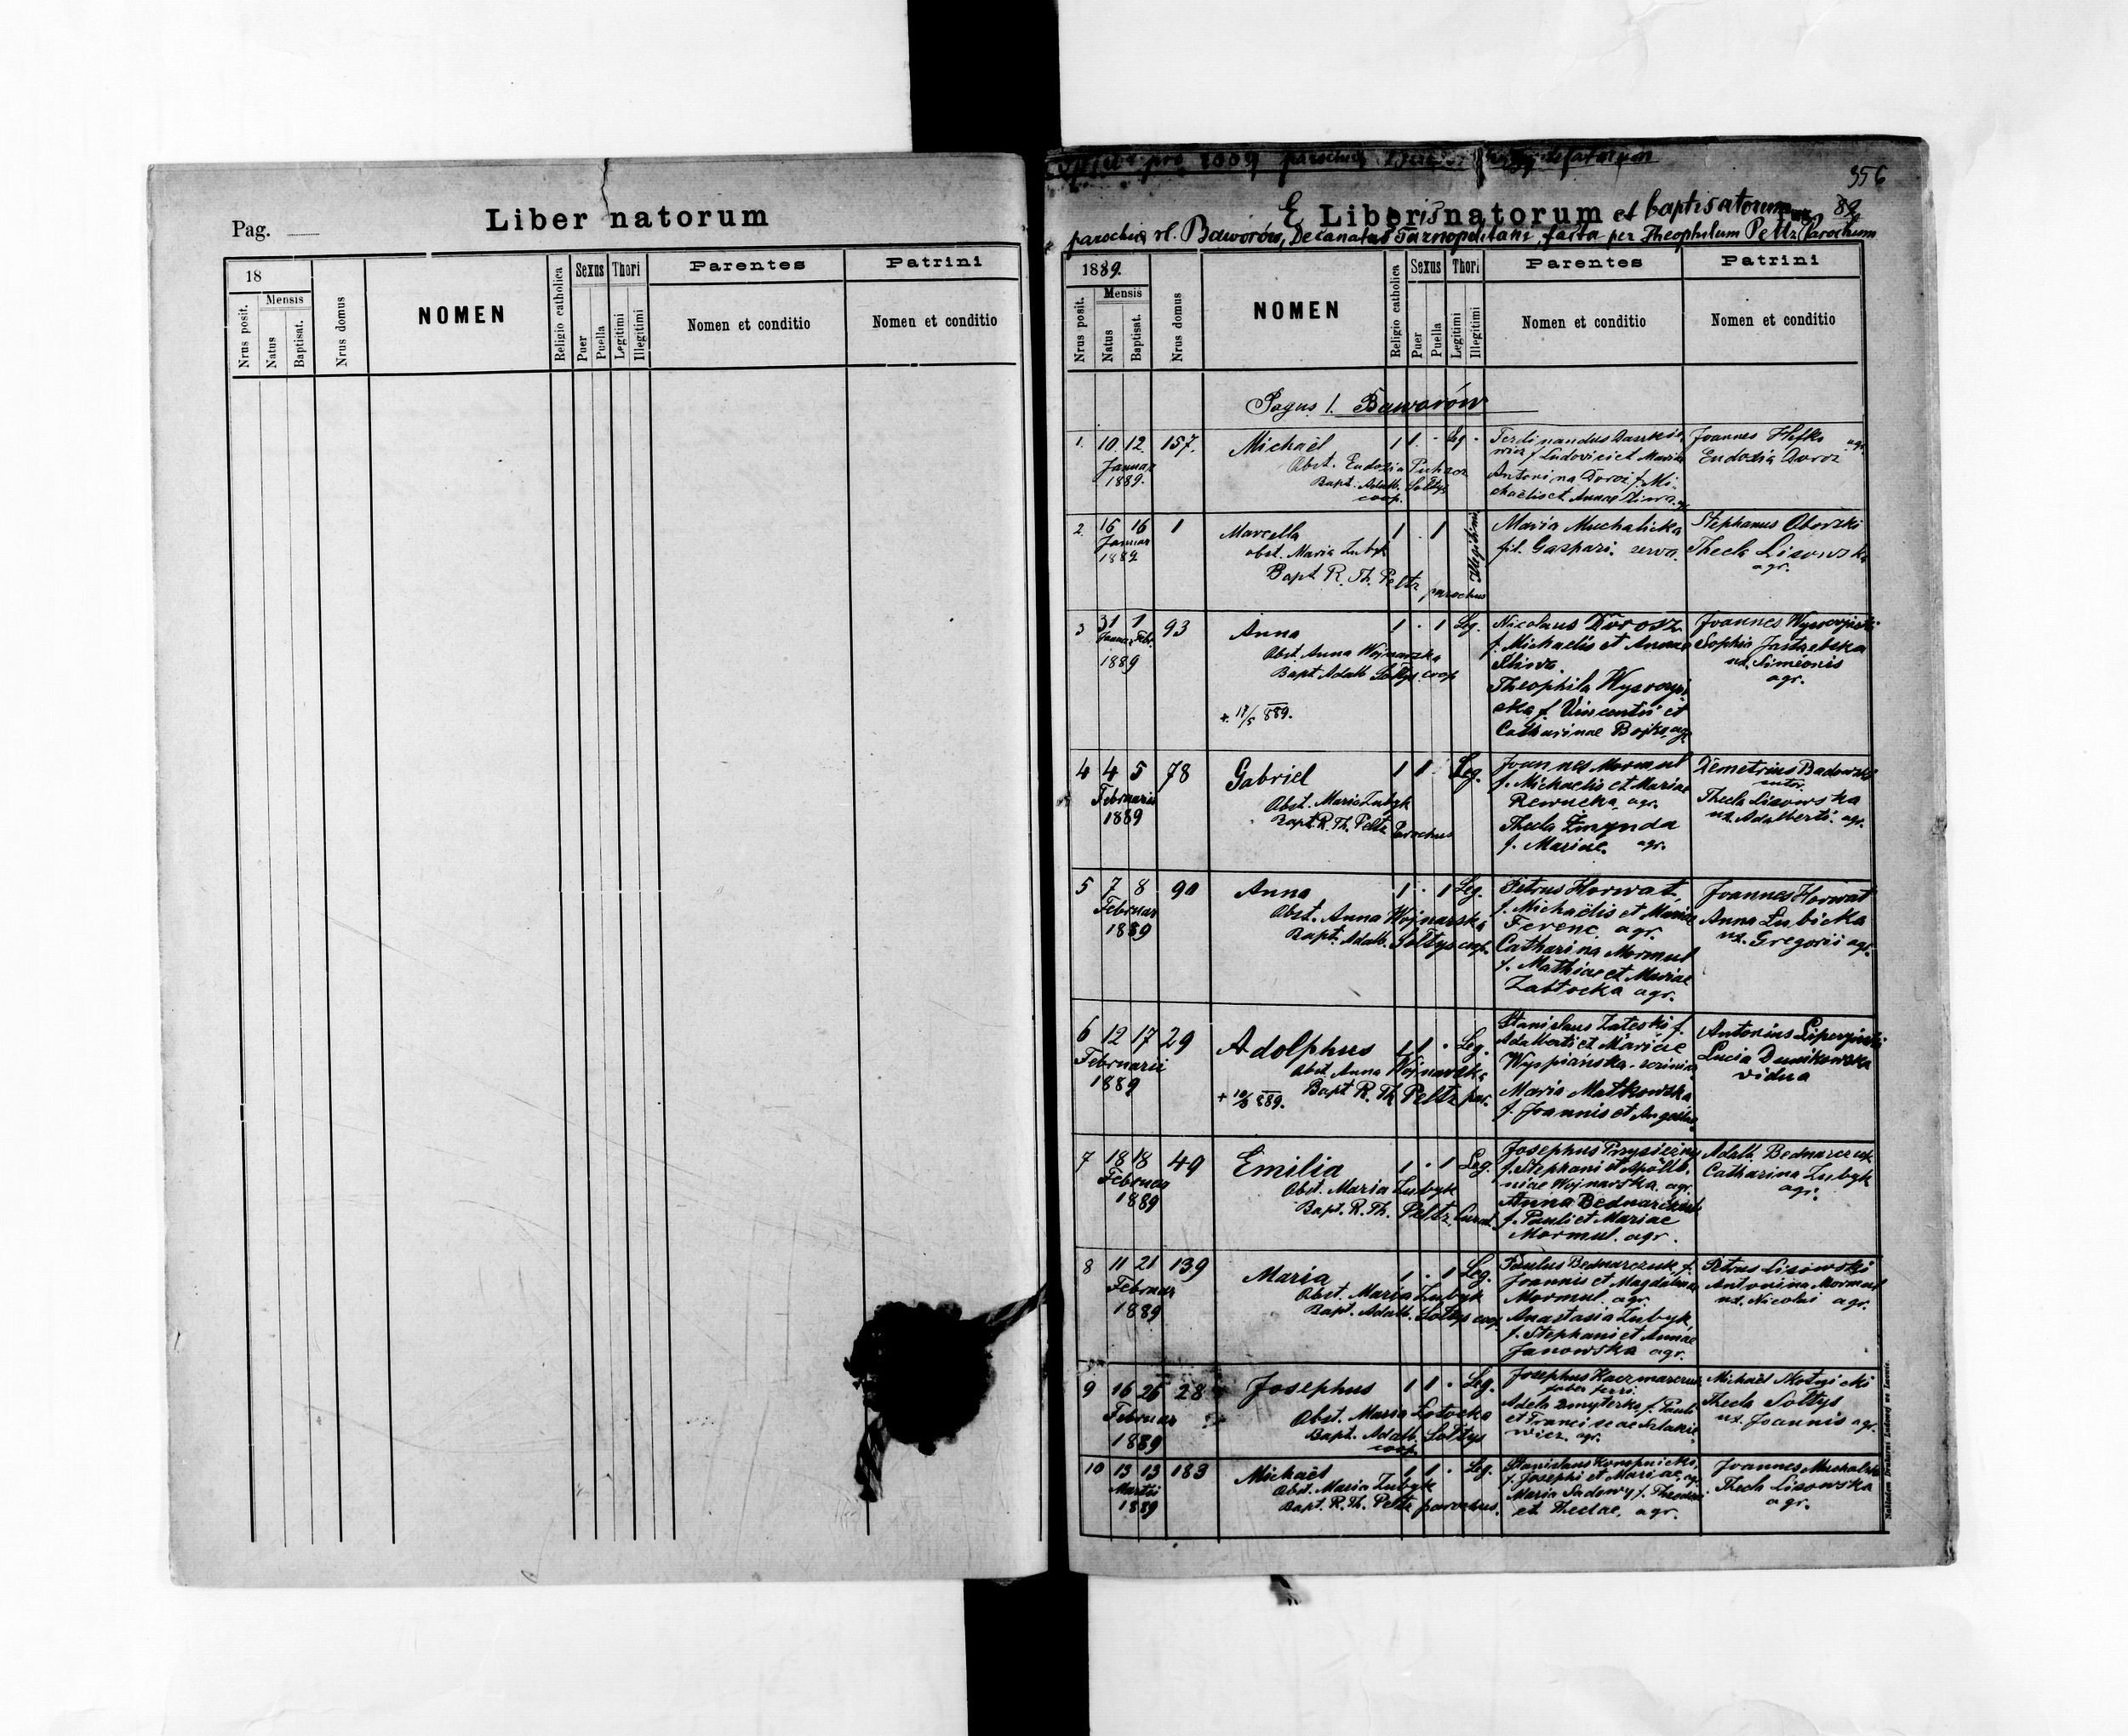 Pag.
Liber natorum
18
Mensis
Nrus posit.
Natus
Baptisat.
Nrus domus
NOMEN
Religio catholica
Sexus
Puer
Puella
Thori
Legitimi
Illegitimi
Parentes
Nomen et conditio
Patrini
Nomen et conditio
pro parochia
356
E Libris natorum et baptisatorum 82
parochiae r. l. Baworów, Decanatus Tarnopoliensis, facta per Theophilum Peltz Parochum
1889.
Mensis
Nrus posit.
Natus
Baptisat.
Nrus domus
NOMEN
Religio catholica
Sexus
Puer
Puella
Thori
Legitimi
Illegitimi
Parentes
Nomen et conditio
Patrini
Nomen et conditio
Pagus 1. Baworów
1. 10. 12. 157.
Januar
1889.
Michaël
Obst. Eudoxia
Bapt. Adalb. Sołtys
coop.
1 1 · Leg ·
Ferdinandus
f. Ludovici et Maria
Antonina Dorosz f. Mi-
chaëlis et Annae
Joannes agr.
Eudoxia Dorosz
2. 15 16 1
Januar
1889
Marcella
obst. Maria Zubyk
Bapt R. Th. Peltz parochus
1 · 1
Illegitimi
Maria Muchalicka
fil. Gaspari. serva.
Stephanus Oborski
Thecla Lisowska
agr.
3 31 1 93
Januar Febr.
1889
Anna
Obst. Anna Wojnarska
Bapt Adalb Sołtys. coop
+ 17/5 889.
1 · 1 Leg.
Nicolaus Dorosz
f. Michaëlis et Annae
Śliwa.
Theophila
ska f. Vincentii et
Catharinae Bojko agr.
Joannes
Sophia Jastrzebska
ux. Simeonis
agr.
4 4 5 78
Februarii
1889
Gabriel
Obst. Maria Zubyk
Bapt. R. Th. Peltz Parochus
1 1 · Leg.
Joannes Mormul
f. Michaelis et Mariae
Rewucka, agr.
Thecla Żmynda
f. Mariae. agr.
Demetrius Badowski
sutor.
Thecla Lisowska
ux. Adalberti. agr.
5 7 8 90
Februar
1889
Anna
Obst. Anna Wojnarska
Bapt. Adalb. Sołtys coop.
1 · 1 Leg.
Petrus Horwat
f. Michaëlis et Mariae
Ferenc agr.
Catharina Mormul
f. Mathiae et Mariae
Zabłocka agr.
Joannes Horwat
Anna Łubicka
ux. Gregorii agr.
6 12 17 29
Februarii
1889
Adolphus
Obst Anna Wojnarska
Bapt R. Th Peltz par.
+ 10/3 889.
1 1 · Leg.
Stanislaus Zaleski f.
Adalberti et Mariae
Wyspiańska.
Maria Matkowska
f. Joannis et
Antonius
Lucia
vidua
7 18 18 49
Februar
1889
Emilia
Obst. Maria Zubyk
Bapt. R. Th. Peltz Curat.
1 · 1 Leg.
Josephus
f. Stephani et Apollo-
niae Wojnarska. agr.
Anna Bednarczuk
f. Pauli et Mariae
Mormul. agr.
Adalb Bednarczuk
Catharina Zubyk
agr.
8 11 21 139
Februar
1889
Maria
Obst. Maria Zubyk
Bapt. Adalb. Sołtys coop.
1 · 1 Leg.
Paulus Bednarczuk f.
Joannis et Magdalenae
Mormul agr.
Anastasia Zubyk,
f. Stephani et Annae
Janowska agr.
Petrus Lisowski
Antonina Mormul
ux. Nicolai agr.
9 16 26 28
Februar
1889
Josephus
Obst. Maria
Bapt. Adalb. Sołtys
coop.
1 1 · Leg.
Josephus Kaczmarczuk
faber ferri.
Adela Dmyterko f. Pauli
et Franciscae
agr.
Michaël
Thecla Sołtys
ux. Joannis agr.
10 13 13 183
Martii
1889
Michaël
Obst. Maria Zubyk
Bapt. R. Th. Peltz parochus.
1 1 · Leg.
Stanislaus Konopnicki,
f. Josephi et Mariae, agr.
Maria Sadowy f. Theodori
et Theclae, agr.
Joannes
Thecla Lisowska
agr.
Nakładem Drukarni Ludowej we Lwowie.